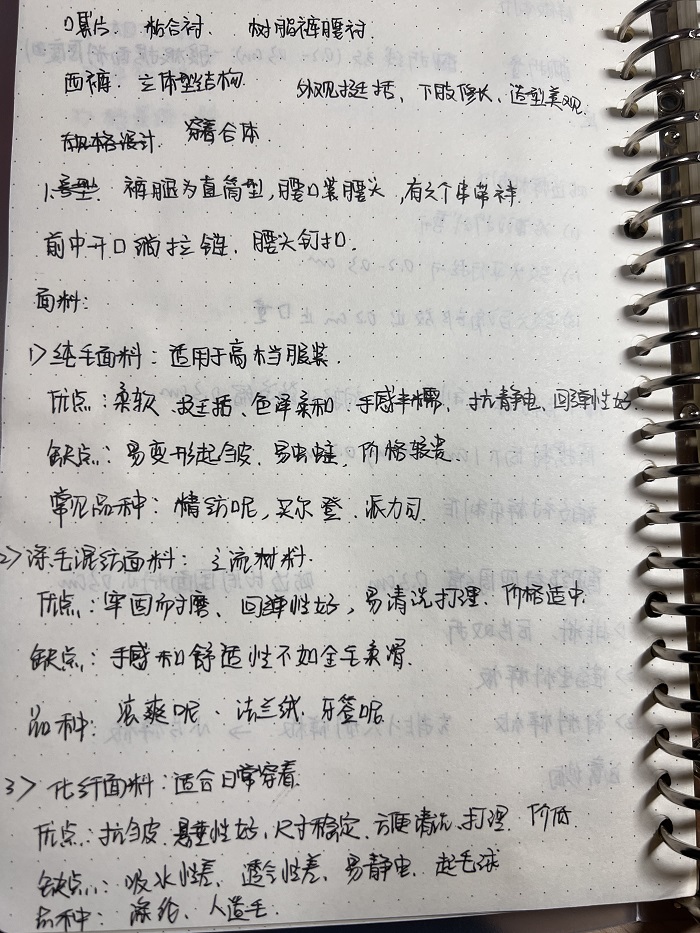 粘合衬、 树脂裤腰衬
西裤: 立体型结构 外观挺括、下肢修长、造型美观.
规格设计 穿着合体
1. 裤腿为直筒型,腰口装腰头,有六个串带袢.
前中开口绱拉链、腰头钉扣.
面料:
1>纯毛面料: 适用于高档服装.
优点: 柔软、挺括、色泽柔和、手感丰糯、抗静电、回弹性好.
缺点: 易变形起皱、易虫蛀、价格较贵.
常见品种: 精纺呢, 买尔登、派力司.
2>涤毛混纺面料: 主流材料.
优点: 牢固耐磨、回弹性好, 易清洗打理、价格适中.
缺点: 手感和舒适性不如全毛柔滑.
品种: 凉爽呢、法兰绒、牙签呢
3> 化纤面料: 适合日常穿着.
优点: 抗皱、悬垂性好、尺寸稳定、方便清洗、打理、价低
缺点: 吸水性差、透气性差、易静电、起毛球
品种: 涤纶、人造毛.